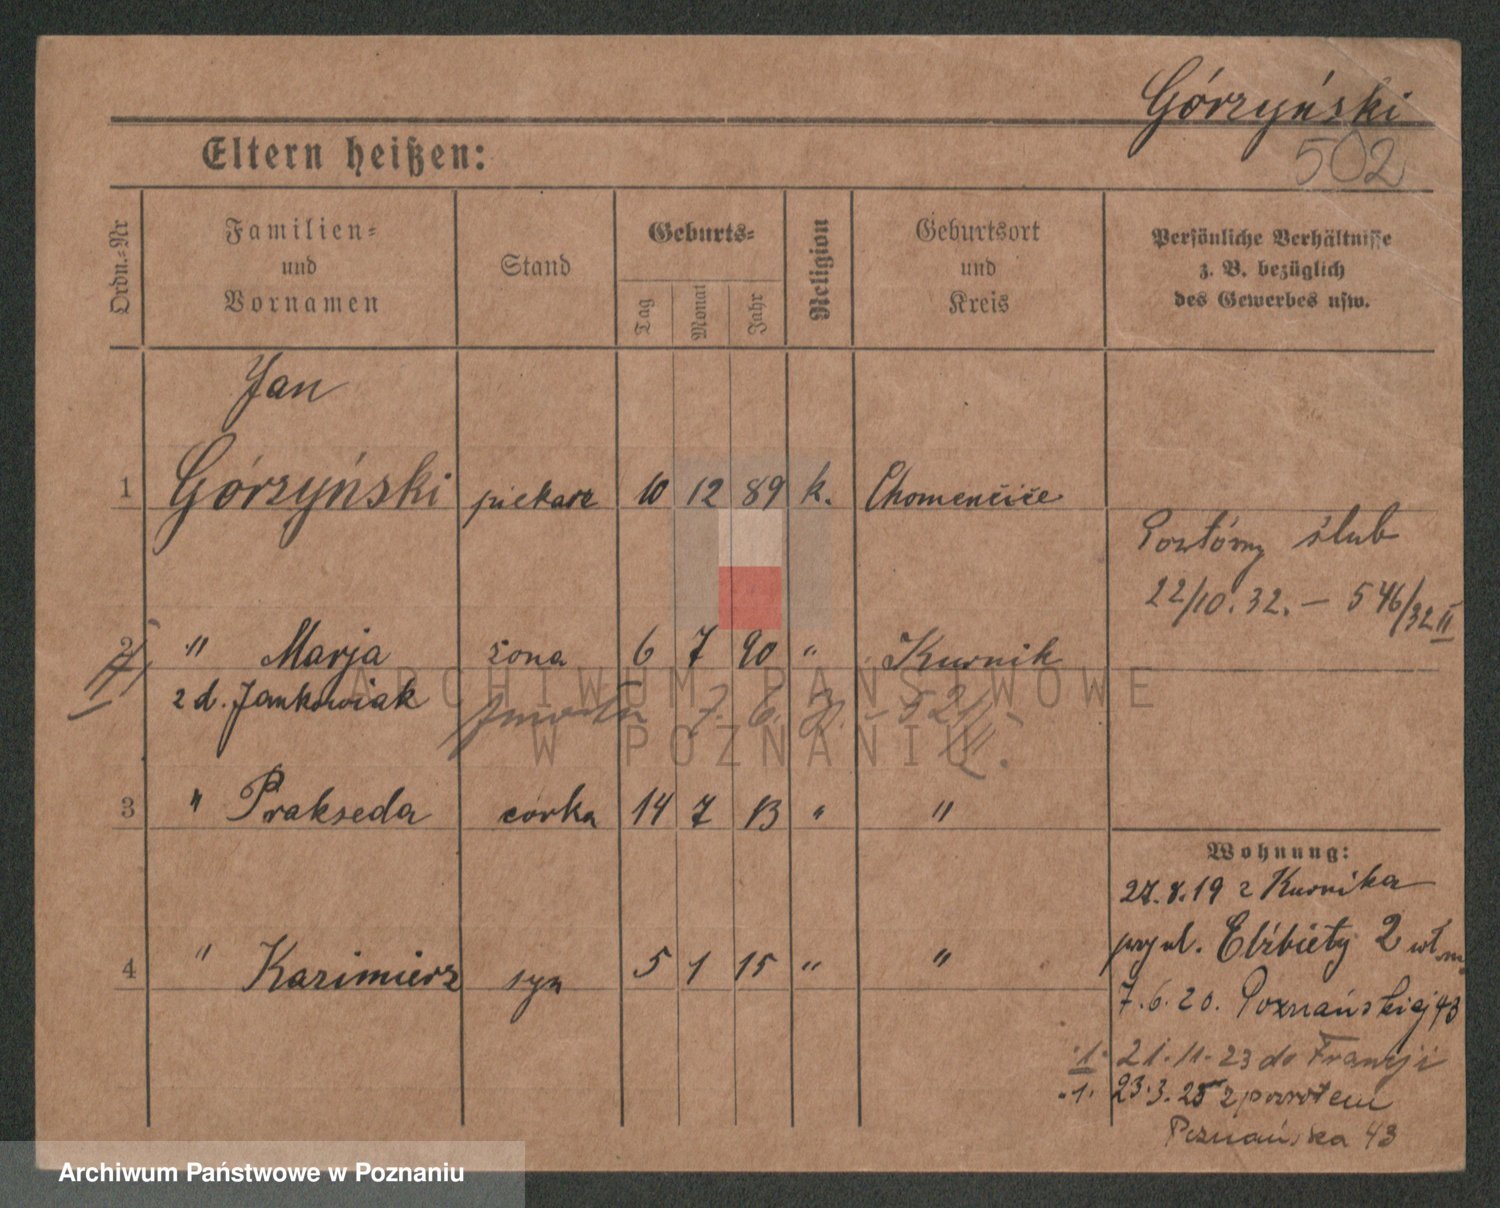 Górzyński
502
Eltern heißen:
Ordn.-Nr
Familien-
und
Vornamen
Stand
Geburts-
Tag
Monat
Jahr
Religion
Geburtsort
und
Kreis
Persönliche Verhältnisse
z. B. bezüglich
des Gewerbes usw.
Jan
1 Górzyński piekarz 10 12 89 k. Chomenčiče
Powtórny ślub
22/10. 32. — 546/32 II
2 " Marja żona 6 7 90 " Kurnik
z d. Jankowiak
zmarła 7. 6.
3 " Prakseda córka 14 7 13 " "
Wohnung:
27.8.19 z Kurnika
4 " Kazimierz syn 5 1 15 " "
przy ul. Elżbiety 2 wł.m.
7.6.20. Poznańskiej 43
.1. 21.11.23 do Francji
.1. 23.3.25 z powrotem
Poznańska 43
ARCHIWUM PAŃSTWOWE
W POZNANIU
Archiwum Państwowe w Poznaniu